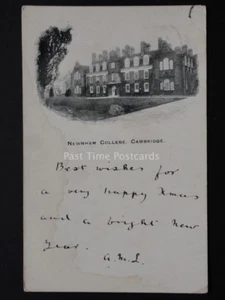 NEWNHAM COLLEGE, CAMBRIDGE.
Past Time Postcards
Best wishes for
a very happy Xmas
and a bright New
Year.
A.M.L